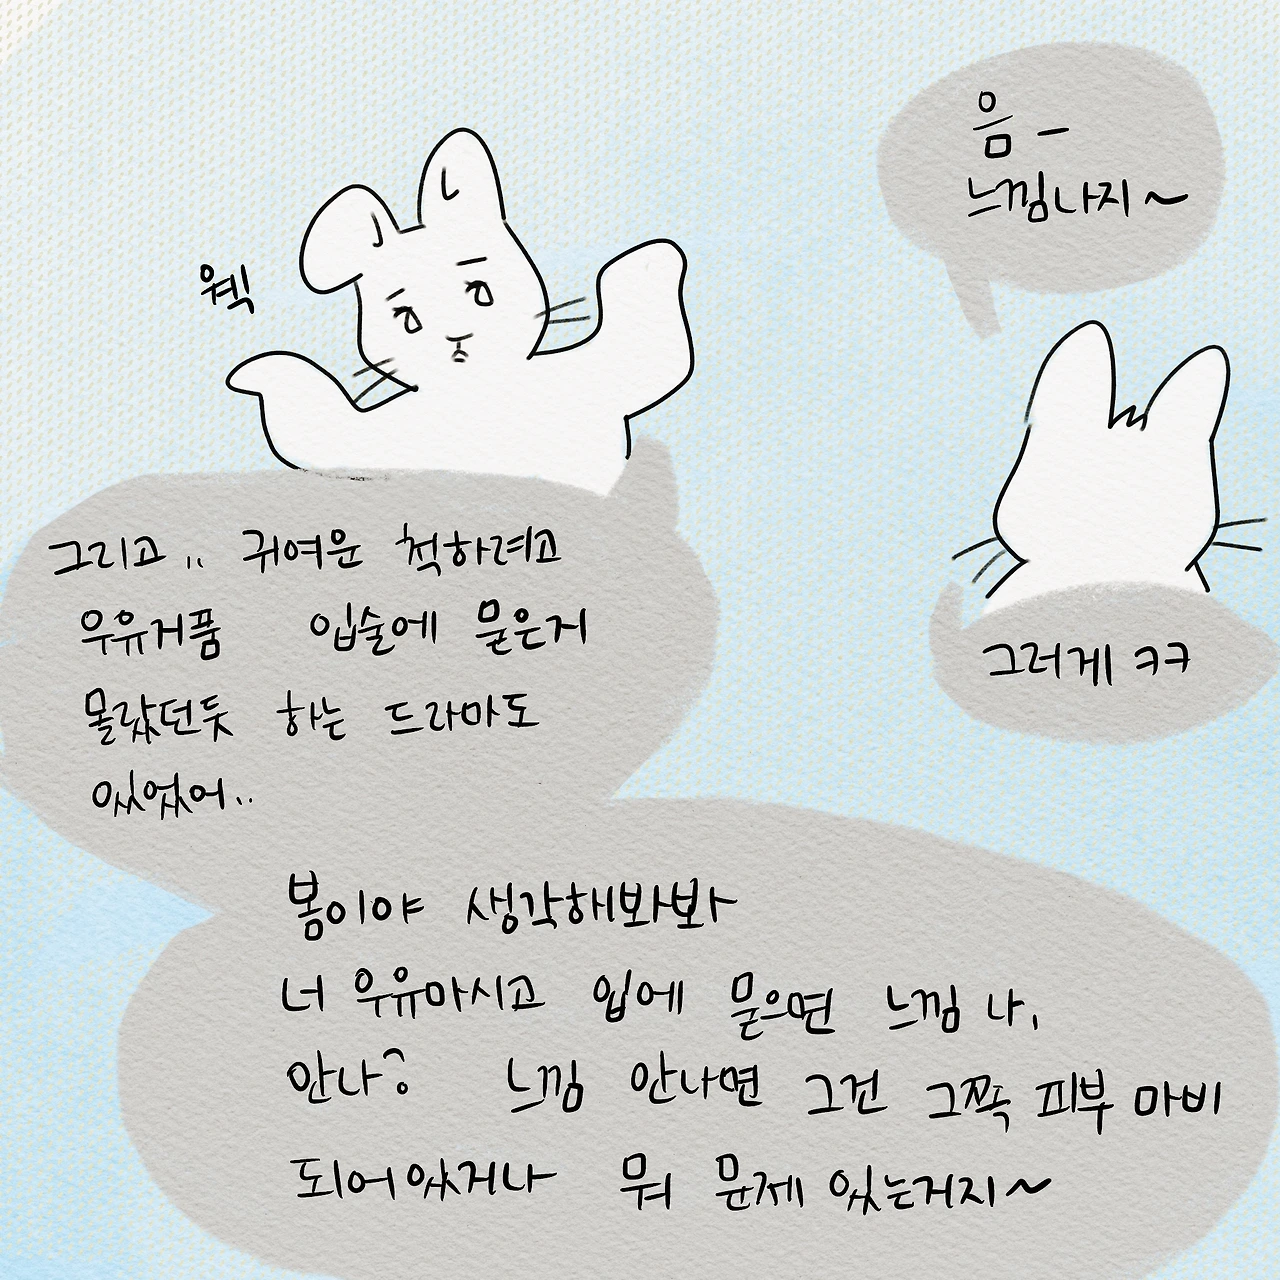 웩
그리고.. 귀여운 척하려고
우유거품 입술에 묻은거
몰랐던듯 하는 드라마도
있었어..
봄이야 생각해봐봐
너 우유마시고 입에 묻으면 느낌 나,
안나? 느낌 안나면 그건 그쪽 피부 마비
되어있거나 뭐 문제 있는거지~
음-
느낌나지~
그러게 ㅋㅋ